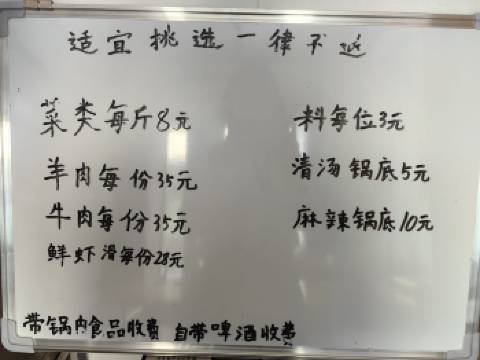 适宜挑选一律不退
菜类每斤8元
羊肉每份35元
牛肉每份35元
鲜虾滑每份28元
料每位3元
清汤锅底5元
麻辣锅底10元
带锅内食品收费 自带啤酒收费